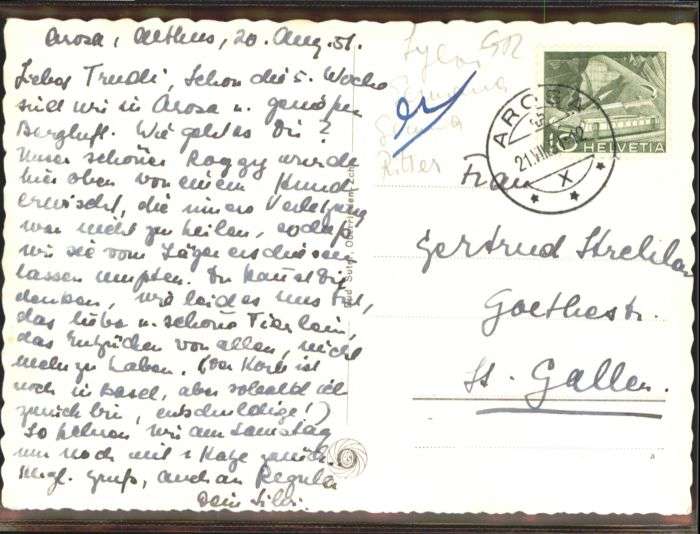 Arosa, 20. Aug. 51.
Liebes Trudi, Schon die 5. Woche
sind wir in Arosa u. geniessen
Bergluft. Wie geht es Dir?
Unser schöner Roggy wurde
hier oben von einem Hund
erwischt, die innere Verletzung
war nicht zu heilen, sodass
wir sie vom Jäger erschiessen
lassen mussten. Du kannst Dir
denken, wie leid es uns tut,
das liebe u. schöne Tierlein,
das Entzücken von allen, nicht
mehr zu haben. (Der Korb ist
noch in Basel, aber sobald ich
zurück bin, entschuldige!)
So kehren wir am Samstag
nur noch mit 1 Katze zurück.
Hrzl. Gruss, auch an Regula
Dein Silvi.
Ritter
AROSA
21.VIII.51
X
HELVETIA
Frau
Gertrud
Goethestr.
St. Gallen.